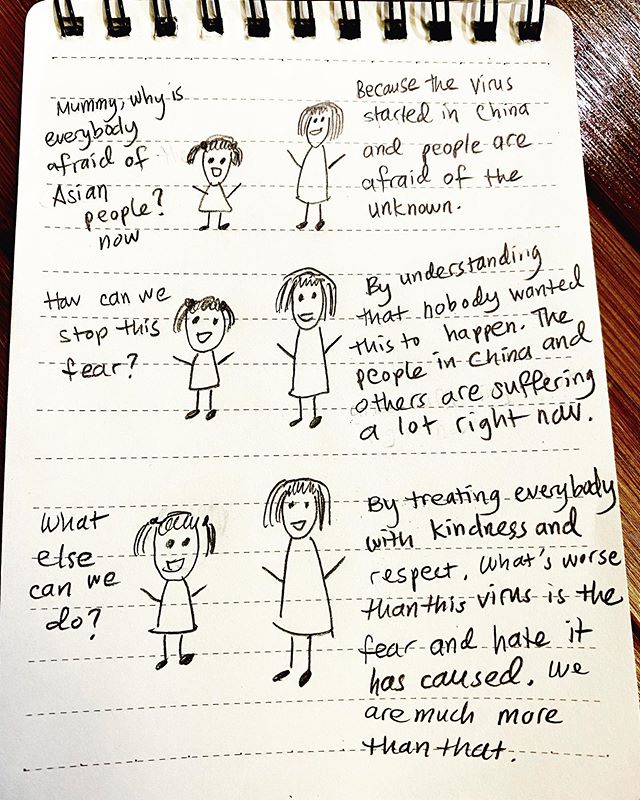 Mummy, why is
everybody
afraid of
Asian
people?
now
Because the virus
started in China
and people are
afraid of the
unknown.
How can we
stop this
fear?
By understanding
that nobody wanted
this to happen. The
people in China and
others are suffering
a lot right now.
What
else
can we
do?
By treating everybody
with kindness and
respect. What's worse
than this virus is the
fear and hate it
has caused. We
are much more
than that.